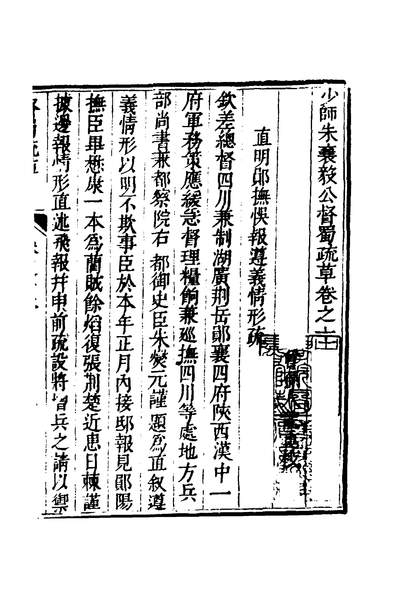 少師朱襄毅公督蜀疏草卷之十
直明鄖撫快報遵義情形疏
欽差總督四川兼制湖廣荆岳鄖襄四府陜西漢中一
府軍務策應緩急督理糧餉兼巡撫四川等處地方兵
部尚書兼都察院右都御史臣朱燮元謹題爲直叙遵
義情形以明不欺事臣於本年正月內接邸報見鄖陽
撫臣畢懋康一本爲藺賊餘焰復張荆楚近患日棘謹
據邊報情形直述飛報并申前疏設將增兵之請以禦